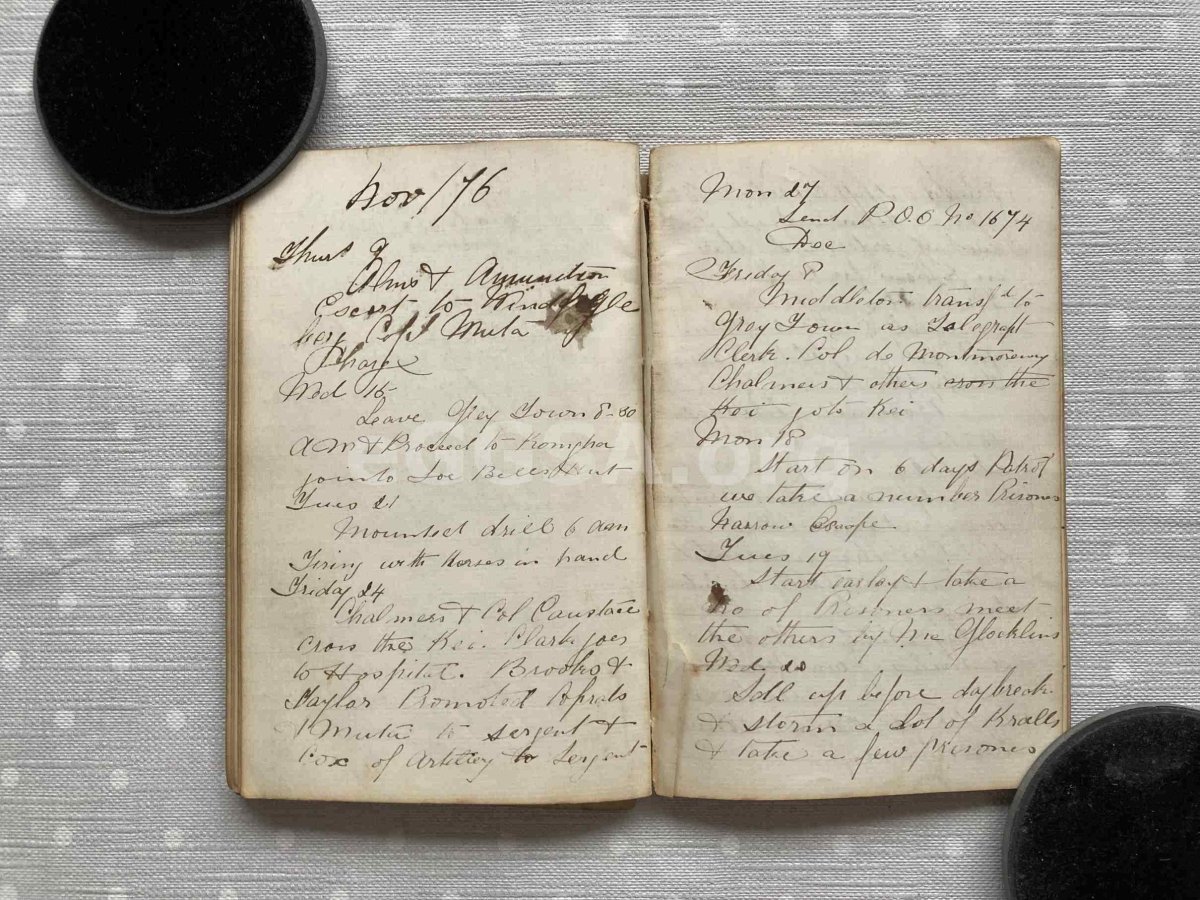 Nov /76
Thurs
Arms & Amunition
Escort to
Corpl Muta
Phaze
Wed 15
Leave Grey Town 8-30
AM & Proceed to Komgha
join to Joe Bells Hut
Tues 21
Mounted drill 6 am
Firing with Horses in hand
Friday 24
Chalmers & Col Eustace
cross the Kei. Clark goes
to Hospital. Brooks &
Taylor Promoted Coprals
& Mutu to sergent &
Cox of Artilley to Sergent
Mon 27
Send P.O.O No 1674
Dec
Friday 8
Middleton transfd to
Grey Town as Telegrapt
Clerk. Col de Montmorency
Chalmers & others cross the
Kei
Mon 18
Start on 6 days Patrol
we take a number Prisones
narrow Escape
Tues 19
Start earley & take a
no of Prisoners meet
the others by Mc Glocklins
Wed 20
up before daybreak
& storm a Lot of Kralls
& take a few prisones
eGGSA.org